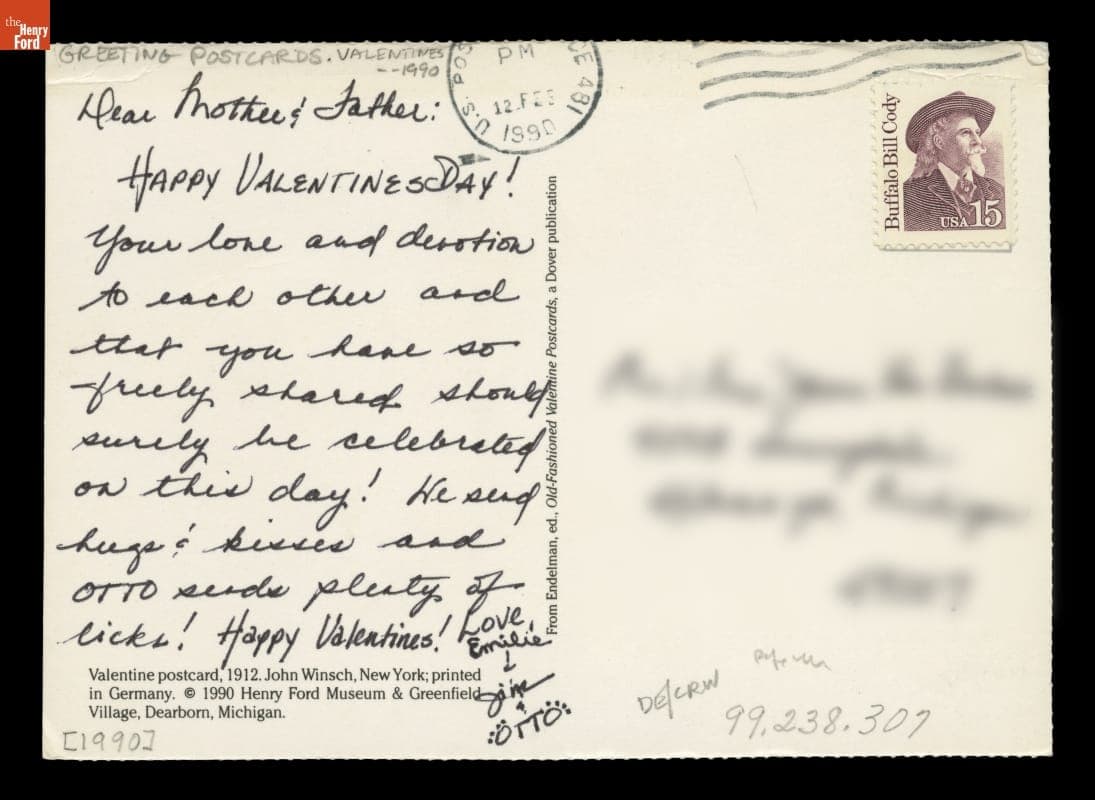 the
Henry
Ford
GREETING POSTCARDS. VALENTINES
--1990
U.S. POS
PM
CE 481
12 FEB
1990
Dear Mother & Father:
HAPPY VALENTINES DAY!
Your love and devotion
to each other and
that you have so
freely shared should
surely be celebrated
on this day! We send
hugs & kisses and
OTTO sends plenty of
licks! Happy Valentines!
Love
Emilie
&
Jim
&
OTTO
Valentine postcard, 1912. John Winsch, New York; printed
in Germany. © 1990 Henry Ford Museum & Greenfield
Village, Dearborn, Michigan.
[1990]
From Endelman, ed., Old-Fashioned Valentine Postcards, a Dover publication
Buffalo Bill Cody
USA 15
DE/CRW
99.238.307